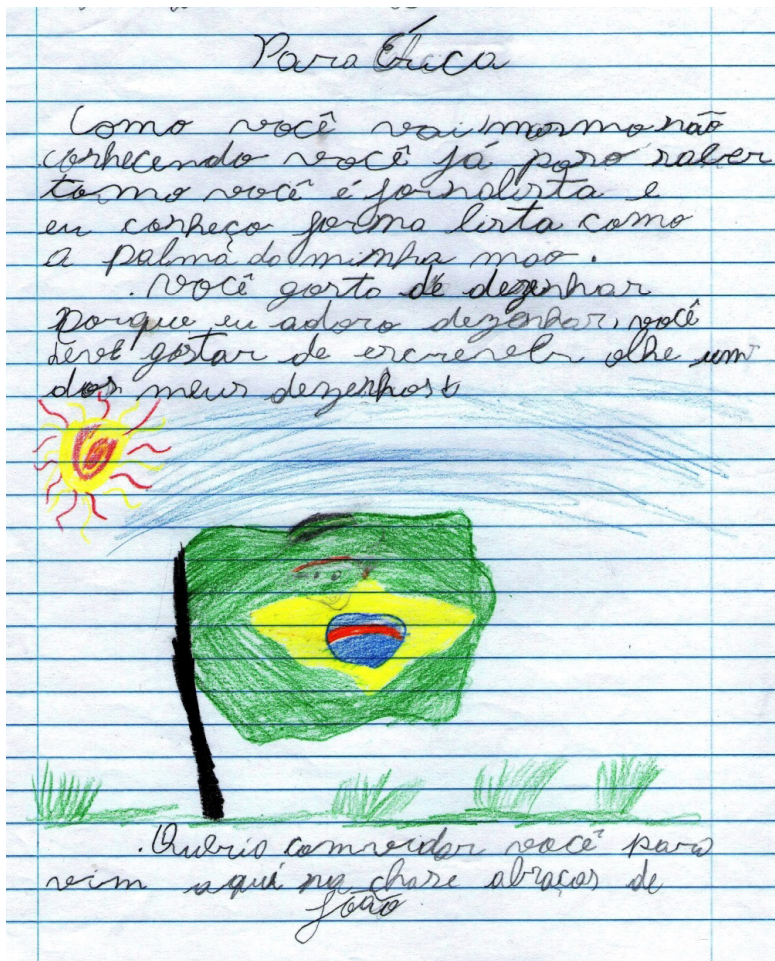 Para Érica
Como você vai, mesmo não
conhecendo você já posso saber
como você é jornalista e
eu conheço jorma lista como
a palma da minha mao.
. Você gosta de dezenhar
porque eu adoro dezenhar, você
deve gostar de escrever olhe um
dos meus dezenhos
. Queria comvidar você para
vim aqui na chase abraços de
João